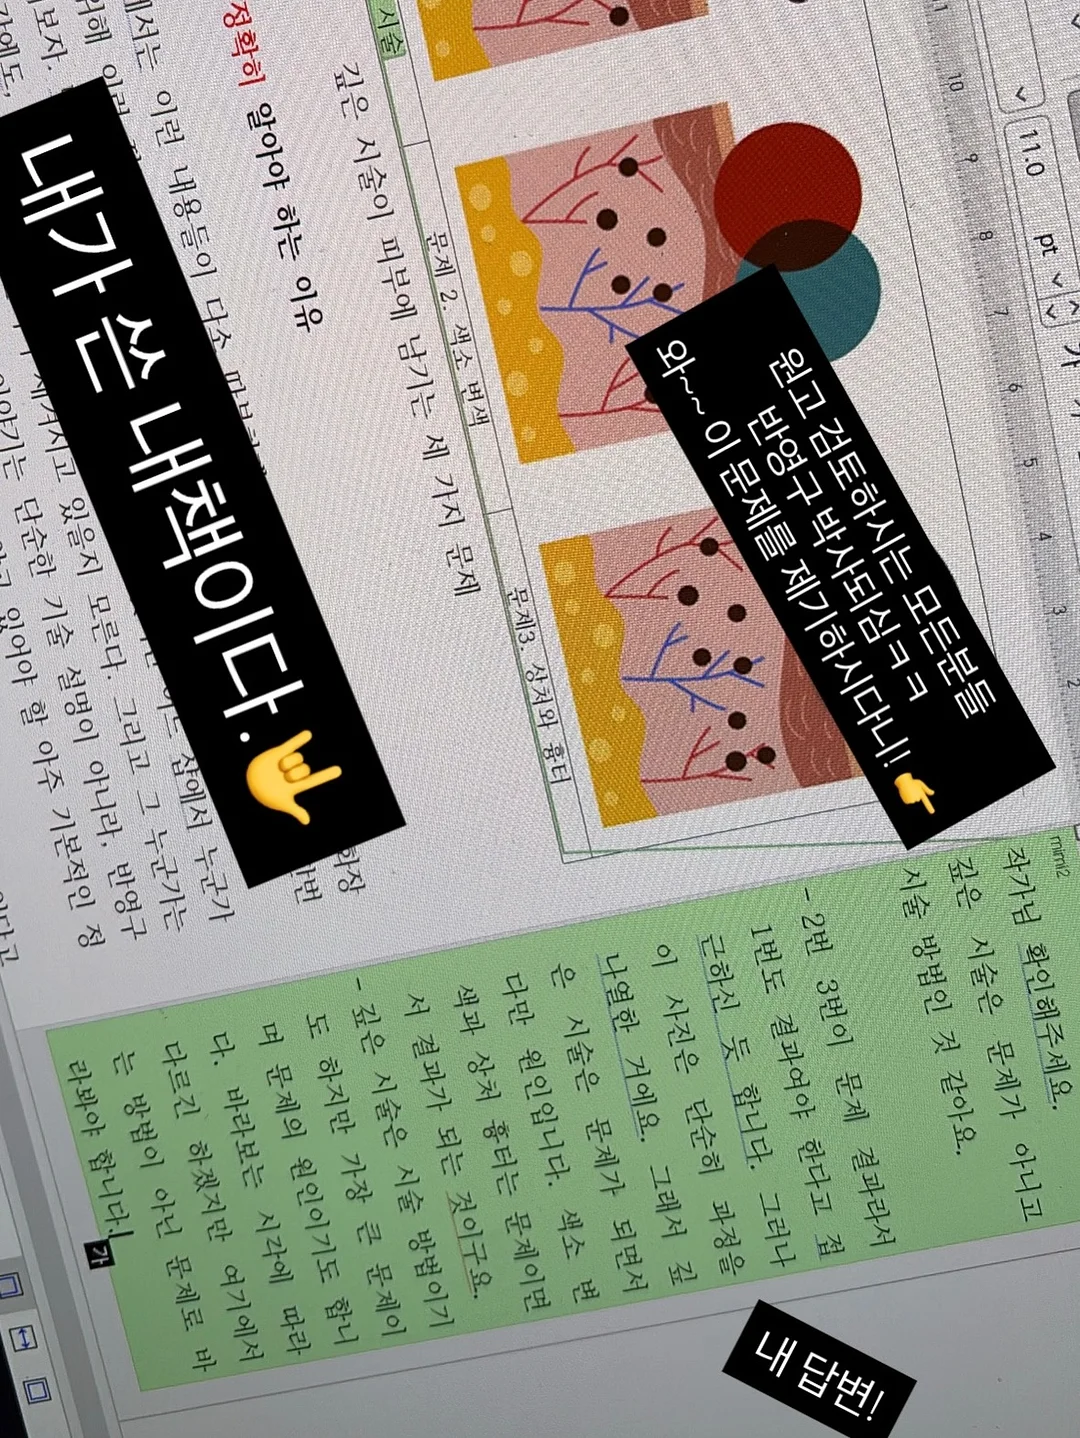 11.0
pt
가
11
10
9
8
7
6
5
4
3
2
원고 검토하시는 모든분들
반영구박사되심ㅋㅋ
와~~ 이 문제를 제기하시다니!👉
시술
문제 2. 색소 변색
문제3. 상처와 흉터
깊은 시술이 피부에 남기는 세 가지 문제
정확히 알아야 하는 이유
에서는 이런 내용들이 다소
내가 쓴 내책이다.🤟
화장
삶에서 누군가
있을지 모른다. 그리고 그 누군가는
이야기는 단순한 기술 설명이 아니라, 반영구
알고 있어야 할 아주 기본적인 정
mimi2
작가님 확인해주세요.
깊은 시술은 문제가 아니고
시술 방법인 것 같아요.
- 2번 3번이 문제 결과라서
1번도 결과여야 한다고 접
근하신 듯 합니다. 그러나
이 사진은 단순히 과정을
나열한 거에요. 그래서 깊
은 시술은 문제가 되면서
다만 원인입니다. 색소 변
색과 상처 흉터는 문제이면
서 결과가 되는 것이구요.
- 깊은 시술은 시술 방법이기
도 하지만 가장 큰 문제이
며 문제의 원인이기도 합니
다. 바라보는 시각에 따라
다르긴 하겠지만 여기에서
는 방법이 아닌 문제로 바
라봐야 합니다.
가
내 답변!